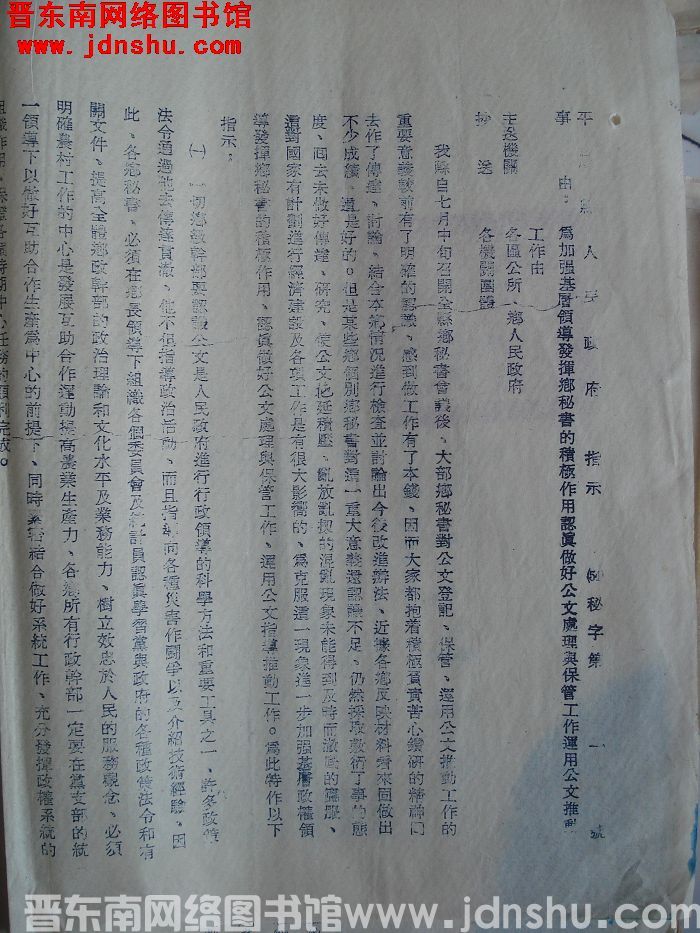 晋东南网络图书馆
www.jdnshu.com
平 縣人民政府指示 (54)秘字第一號
事由：為加强基層領導發揮鄉秘書的積極作用認眞做好公文處理與保管工作運用公文推動
工作由
主送機關 各區公所、鄉人民政府
抄送 各機關團體
我縣自七月中旬召開全縣鄉秘書會議後、大部鄉秘書對公文登記、保管、運用公文推動工作的
重要意義較前有了明確的認識、感到做工作有了本錢、因而大家都抱着積極負責苦心鑽研的精神回
去作了傳達、討論、結合本鄉情况進行檢查並討論出今後改進辦法、近據各鄉反映材料看來回做出
不少成績、這是好的。但是某些鄉個別鄉秘書對這一重大意義還認識不足、仍然採取敷衍了事的態
度、囘去未做好傳達、研究、使公文拖延積壓、亂放亂扔的混亂現象未能得到及時而澈底的糾正、
這對國家有計劃進行經濟建設及各項工作是有很大影响的、為克服這一現象進一步加强基層政權領
導發揮鄉秘書的積極作用、認眞做好公文處理與保管工作、運用公文指導推動工作。為此特作以下
指示：
㈠一切鄉級幹部要認識公文是人民政府進行行政領導的科學方法和重要工具之一、許多政策
法令通過他去傳達貫澈、他不但指導政治活動、而且指導向各種災害作鬪爭以及介紹技術經驗。因
此、各鄉秘書、必須在鄉長領導下組織各個委員會及統計員認眞學習黨與政府的各種政策法令和有
關文件、提高全體鄉政幹部的政治理論和文化水平及業務能力、樹立效忠於人民的服務觀念、必須
明確農村工作的中心是發展互助合作運動提高農業生產力、各鄉所有行政幹部一定要在黨支部的統
一領導下以做好互助合作生產為中心的前提下、同時緊密結合做好系統工作、充分發揮政權系統的
組織作用、保證各個時期中心任務的順利完成。
晋东南网络图书馆 www.jdnshu.com